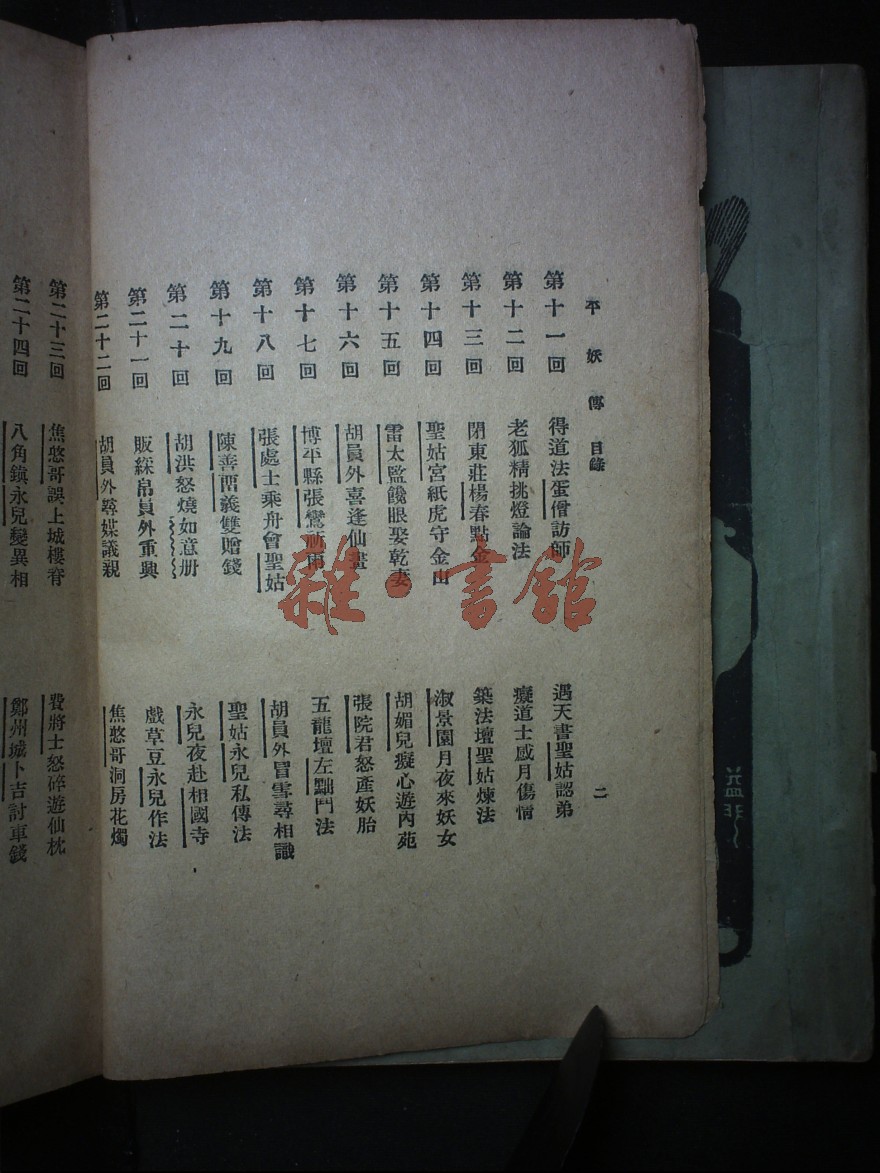 平妖傳 目錄 二
第十一回 得道法蛋僧訪師 遇天書聖姑認弟
第十二回 老狐精挑燈論法 癡道士感月傷情
第十三回 閉東莊楊春點金 築法壇聖姑煉法
第十四回 聖姑宮紙虎守金山 淑景園月夜來妖女
第十五回 雷太監饞眼娶乾妻 胡媚兒癡心遊內苑
第十六回 胡員外喜逢仙畫 張院君怒產妖胎
第十七回 博平縣張鸞祈雨 五龍壇左黜鬥法
第十八回 張處士乘舟會聖姑 胡員外冒雪尋相識
第十九回 陳善留義雙贈錢 聖姑永兒私傳法
第二十回 胡洪怒燒如意册 永兒夜赴相國寺
第二十一回 販綵帛員外重興 戲草豆永兒作法
第二十二回 胡員外尋媒議親 焦憨哥洞房花燭
第二十三回 焦憨哥誤上城樓脊 費將士怒碎遊仙枕
第二十四回 八角鎮永兒變異相 鄭州城卜吉討車錢
雜·書館